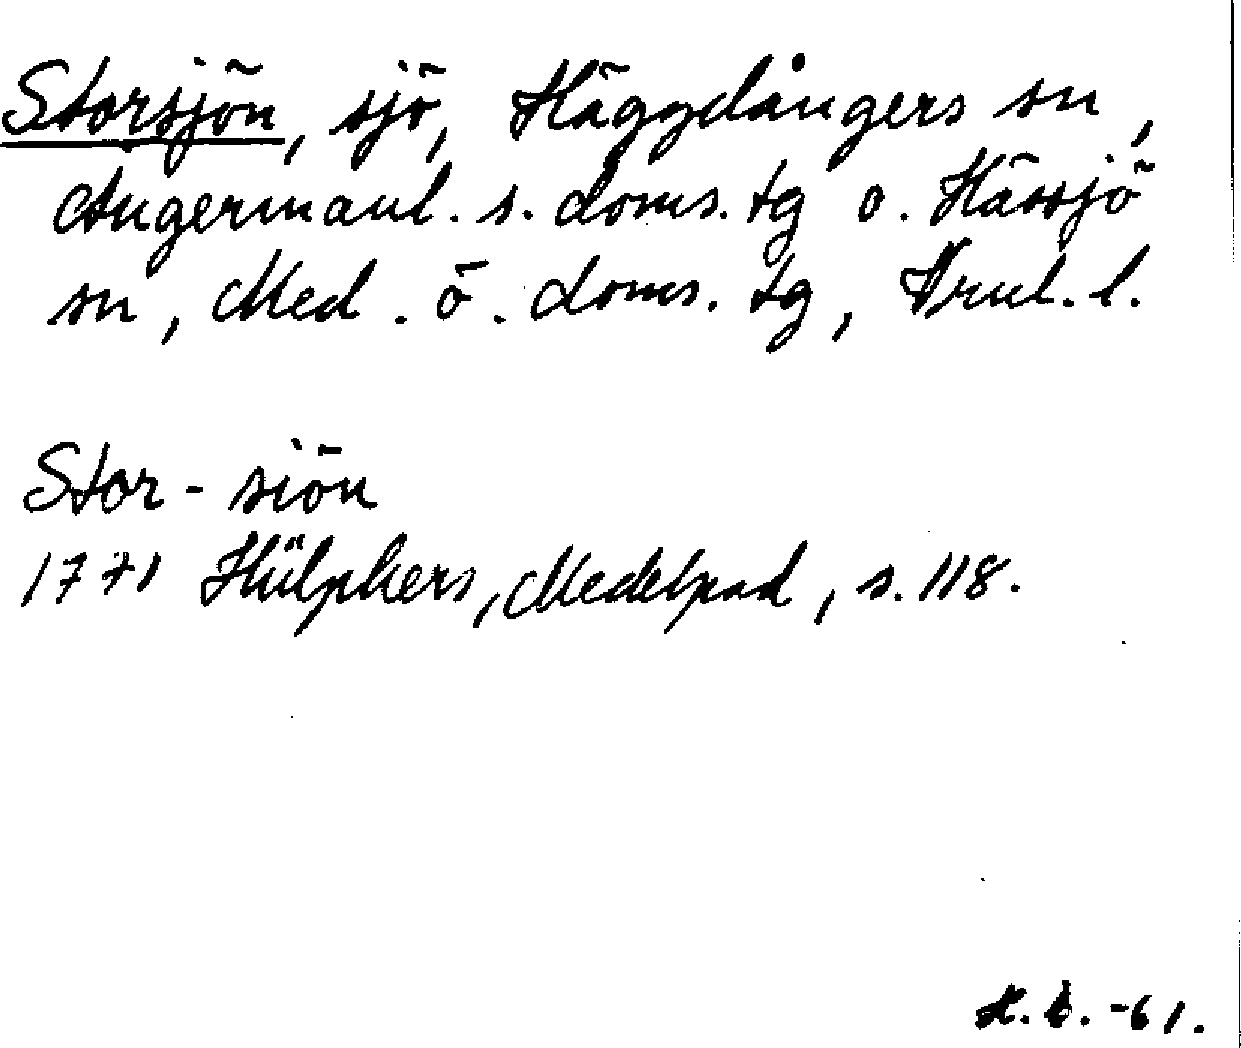 Storsjön, sjö, Häggdångers sn,
Ångermanl. s. doms. tg o. Hässjö
sn, Med. ö. doms. tg, Vrnl. l.
Stor-siön
1771 Hülphers, Medelpad, s. 118.
H. b. -61.